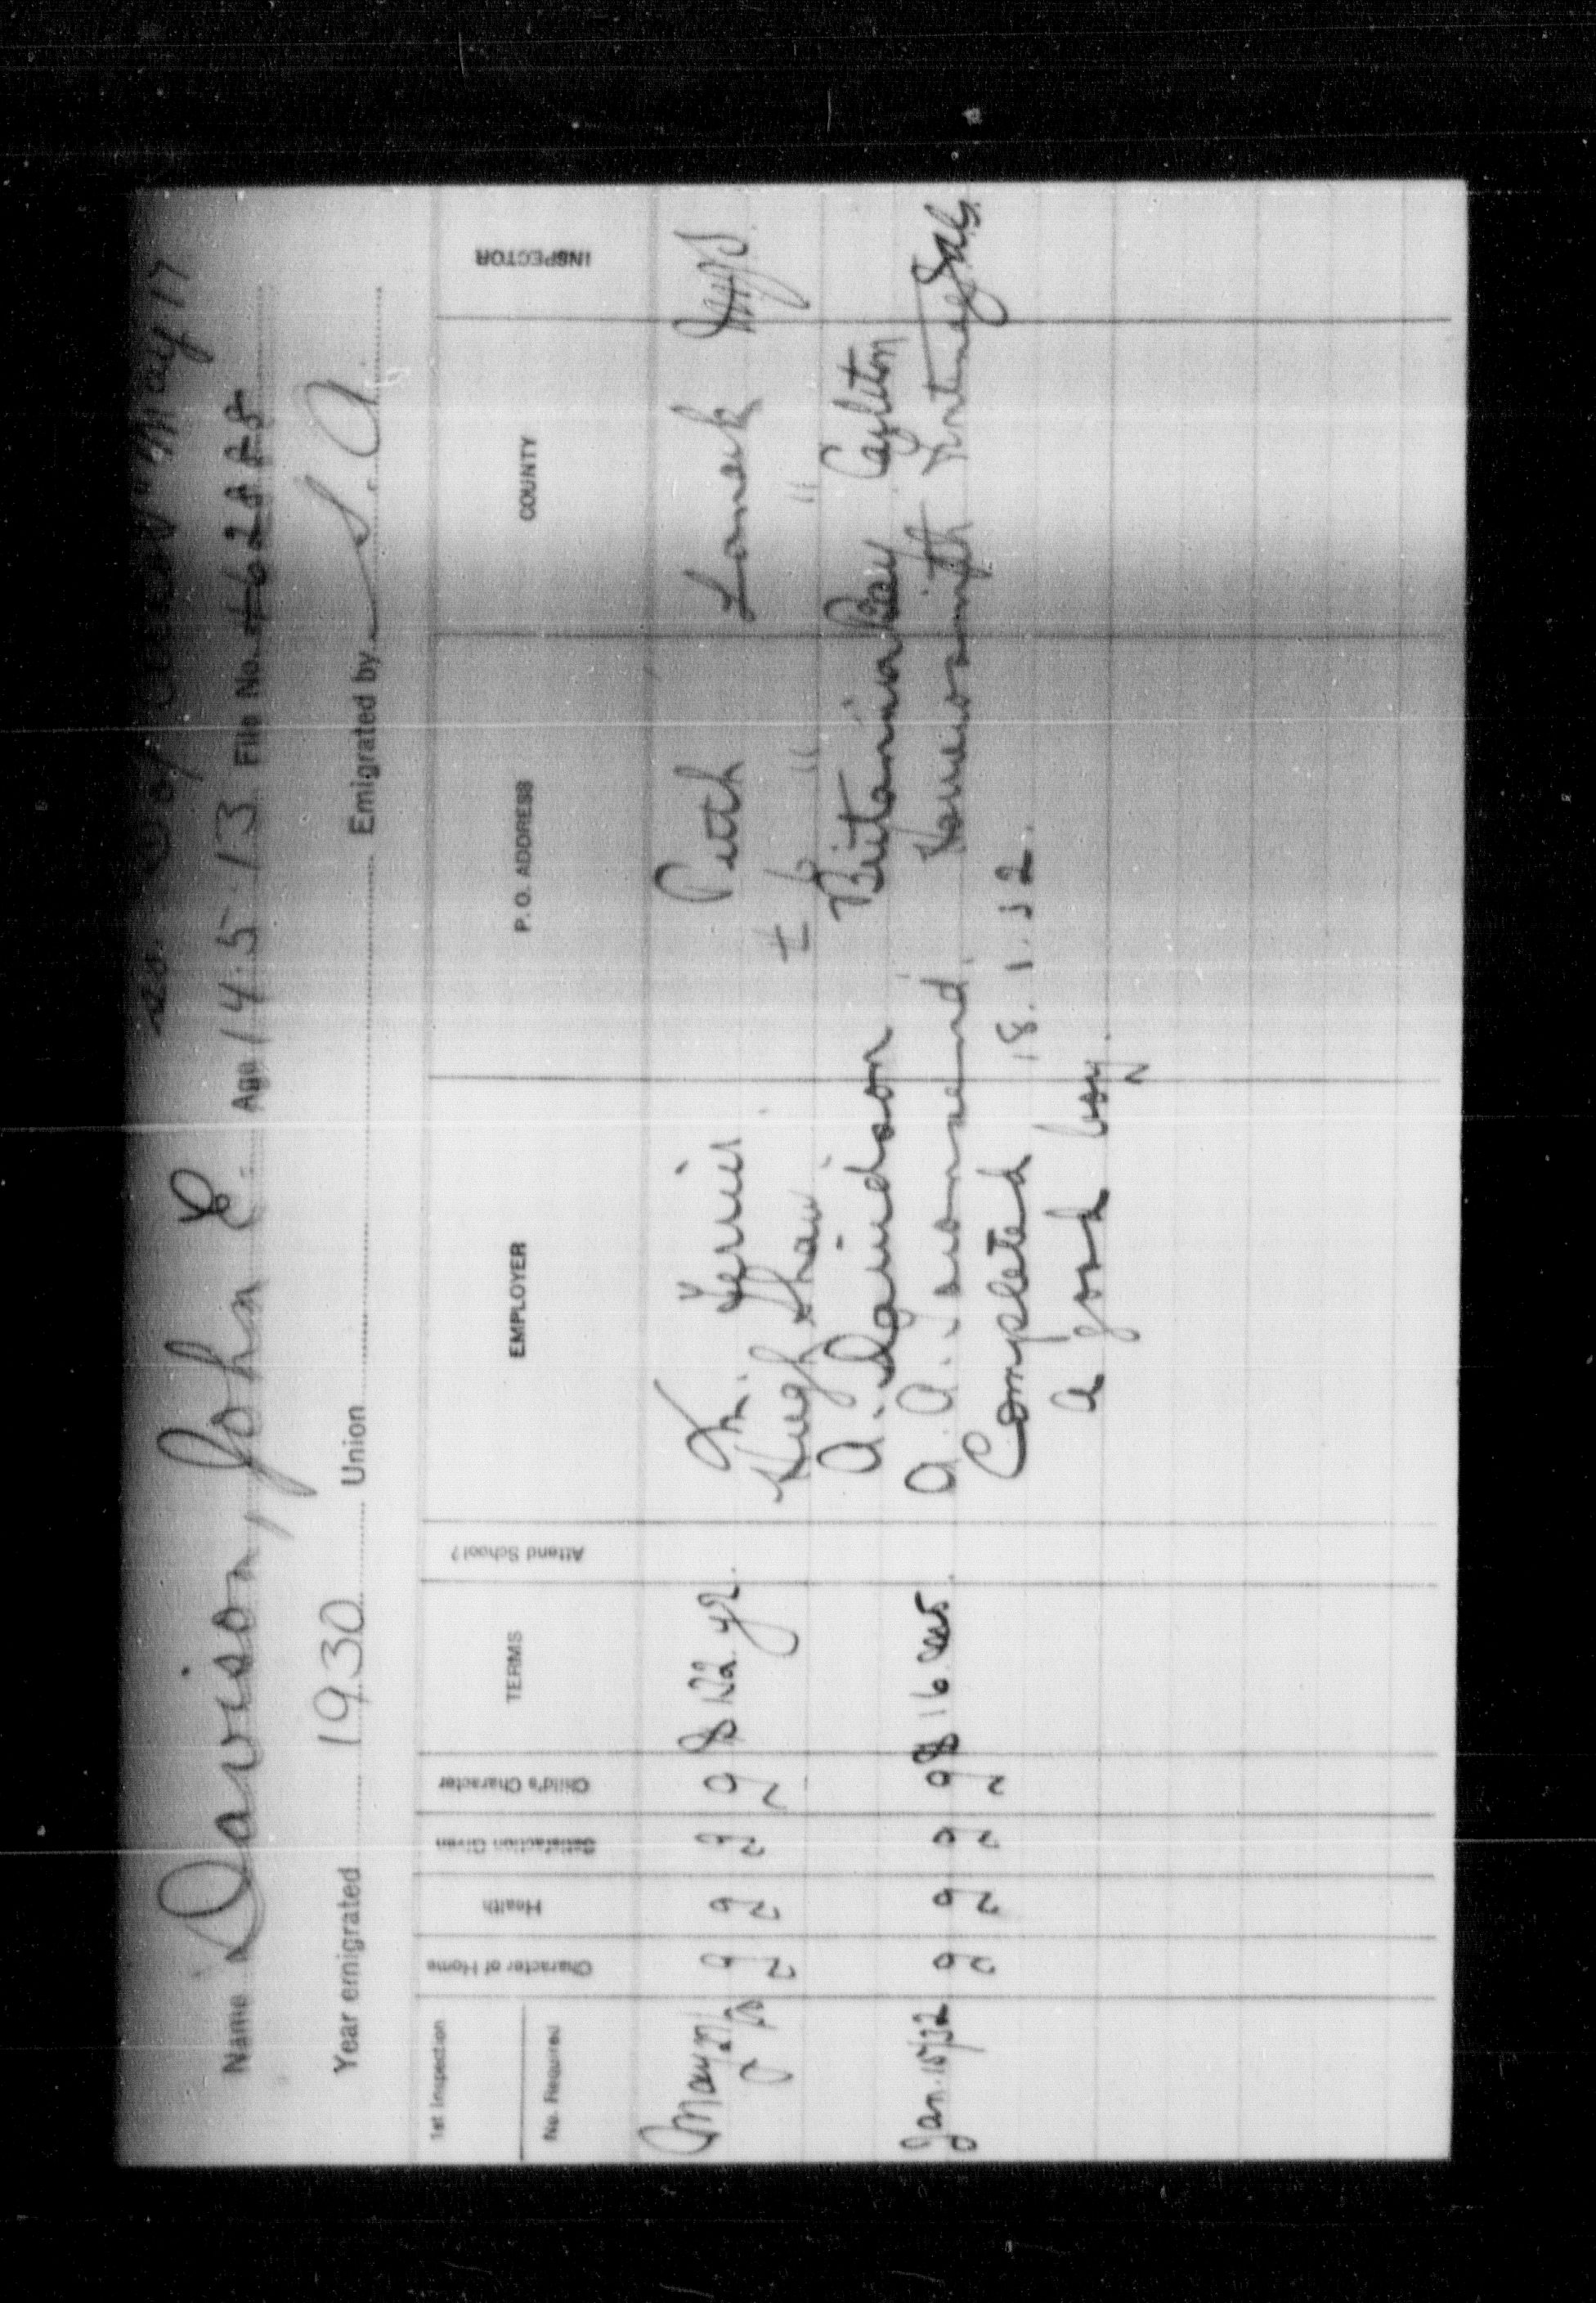 May 17
Name Davison, John E. Age 14.5.13 File No.
Year emigrated 1930 Union Emigrated by S. A.
1st Inspection
No. Required
Character of Home
Health
Satisfaction Given
Child's Character
TERMS
Attend School?
EMPLOYER
P. O. ADDRESS
COUNTY
INSPECTOR
May 27/30 g g g g $122 yr. Perth Lanark
Hugh Shaw " "
A. Davidson Britannia Bay Carleton
Jan. 15/32 g g g g $16 A. A. Townsend Homewood
Completed 18.1.32.
a good boy.